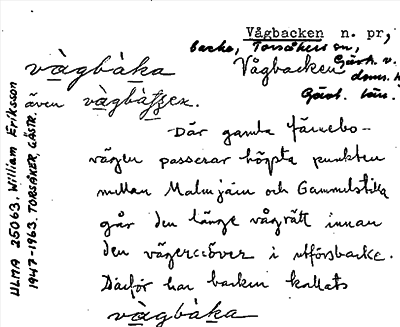 Vågbacken n. pr,
backe, Torsåkers sn,
Gästr. v.
doms.
Gästr. län.
vågbàka Vågbacken
även vågbàssex.
Där gamla färnebo-
vägen passerar högsta punkten
mellan Malmjärn och Gammelstilla
går den länge vågrätt innan
den vägen över i utförsbacke.
Därför har backen kallats
vågbàka
ULMA 25063. William Eriksson
1947-1963. TORSÅKER, GÄSTR.